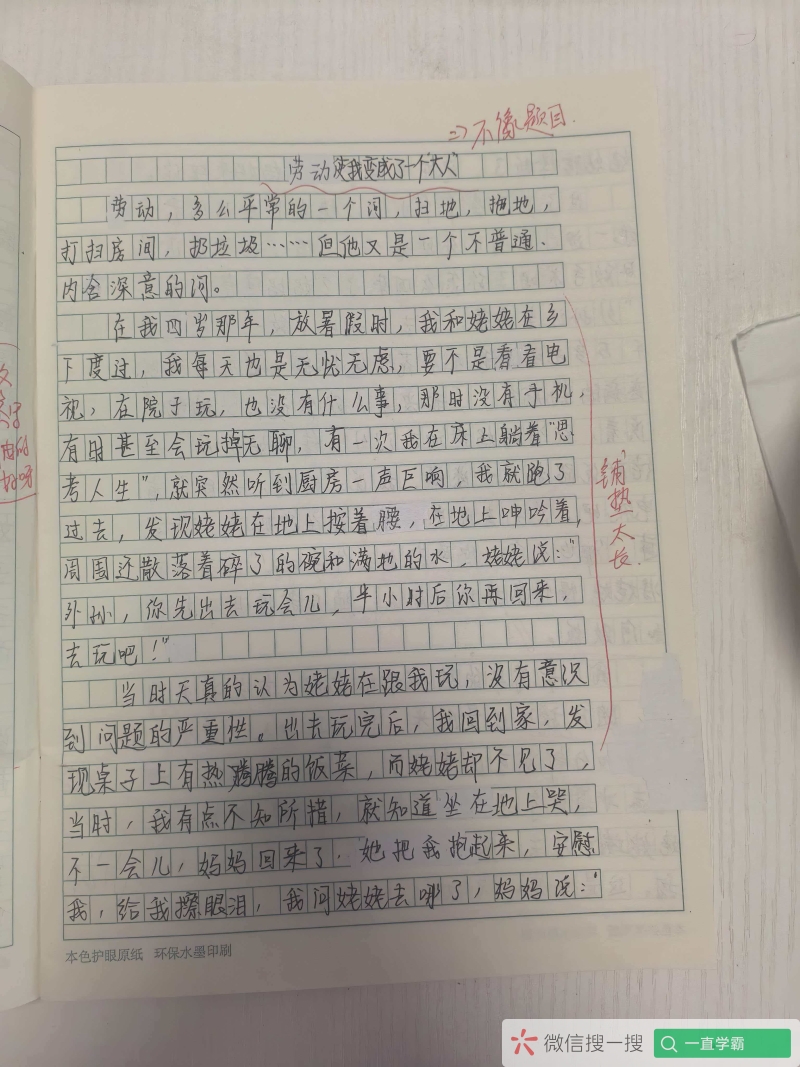 => 不像题目.
劳动使我变成了一个"大人"
劳动，多么平常的一个词，扫地，拖地，
打扫房间，扔垃圾……但他又是一个不普通、
内含深意的词。
在我四岁那年，放暑假时，我和姥姥在乡
下度过，我每天也是无忧无虑，要不是看看电
视，在院子玩，也没有什么事，那时没有手机，
有时甚至会玩掉无聊，有一次我在床上躺着"思
考人生"，就突然听到厨房一声巨响，我就跑了
过去，发现姥姥在地上按着腰，在地上呻吟着，
周围还散落着碎了的碗和满地的水，姥姥说："
外孙，你先出去玩会儿，半小时后你再回来，
去玩吧！"
铺垫太长.
当时天真的认为姥姥在跟我玩，没有意识
到问题的严重性。出去玩完后，我回到家，发
现桌子上有热腾腾的饭菜，而姥姥却不见了，
当时，我有点不知所措，就知道坐在地上哭，
不一会儿，妈妈回来了．她把我抱起来，安慰
我，给我擦眼泪，我问姥姥去哪了，妈妈说："
本色护眼原纸 环保水墨印刷
微信搜一搜
一直学霸